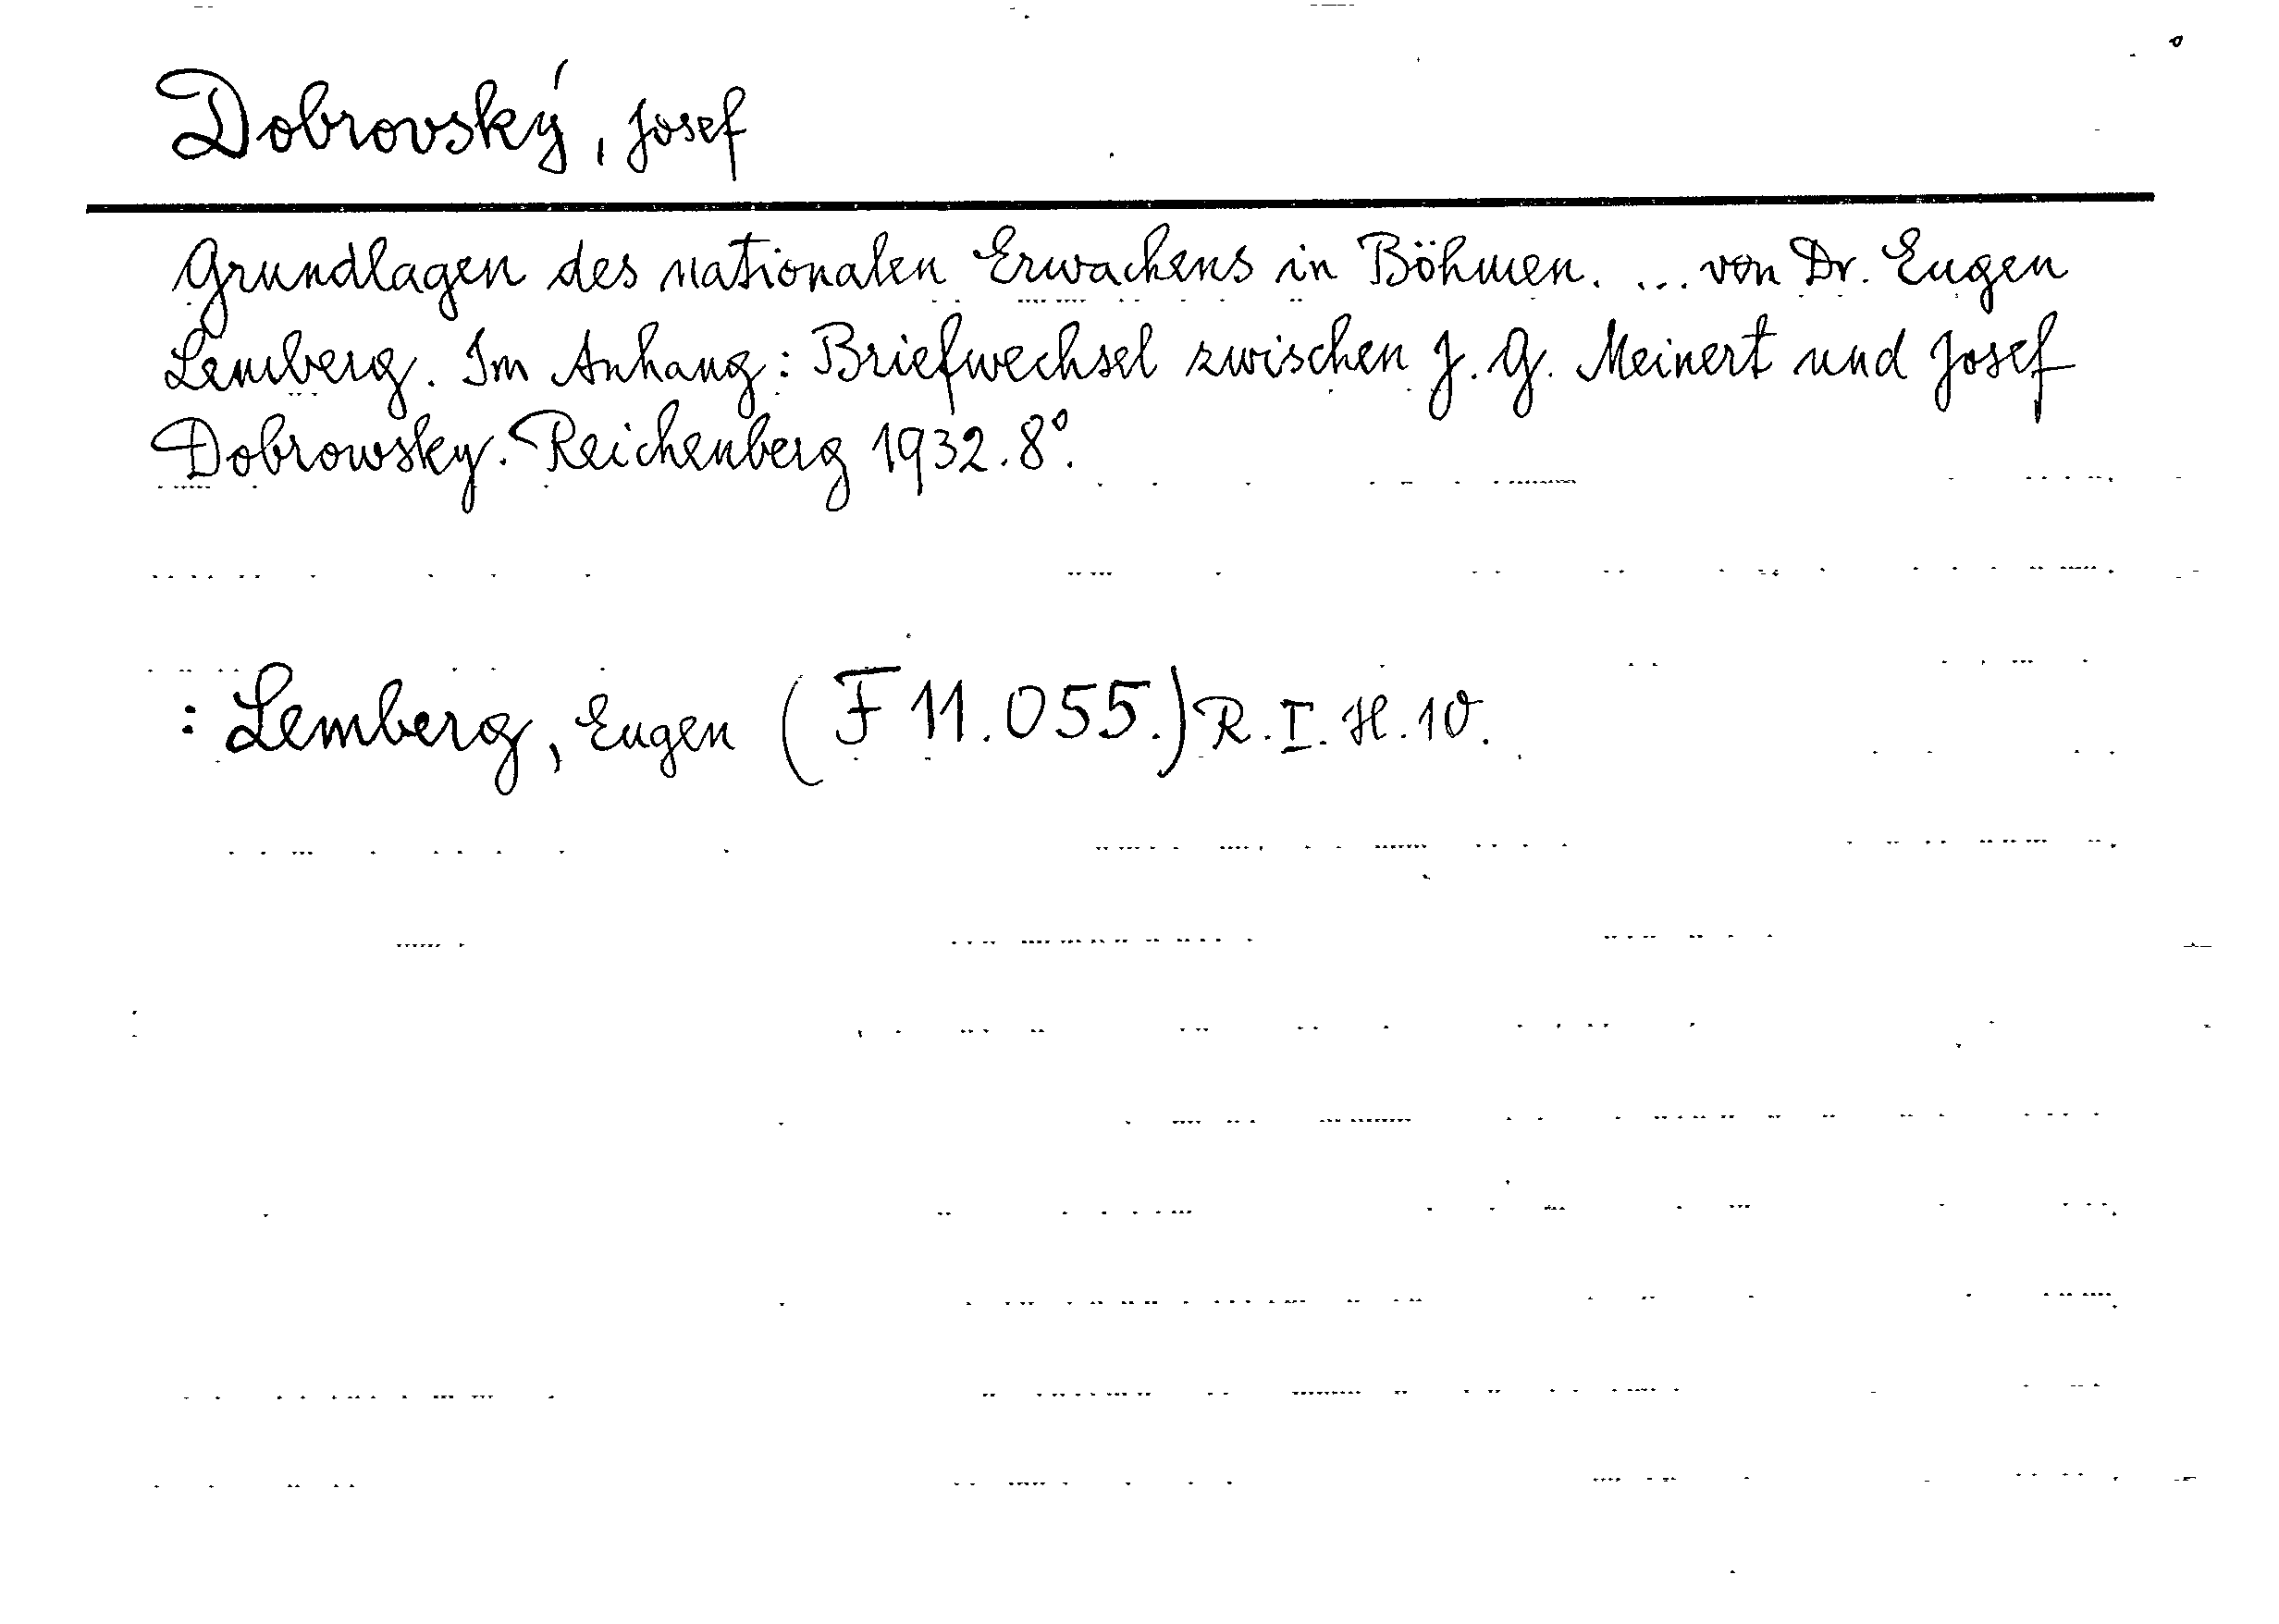 Dobrovský, Josef
Grundlagen des nationalen Erwachens in Böhmen. ... von Dr. Eugen
Lemberg. Im Anhang: Briefwechsel zwischen J. G. Meinert und Josef
Dobrowsky. Reichenberg 1932. 8°.
: Lemberg, Eugen (F 11.055.) R. I. H. 10.